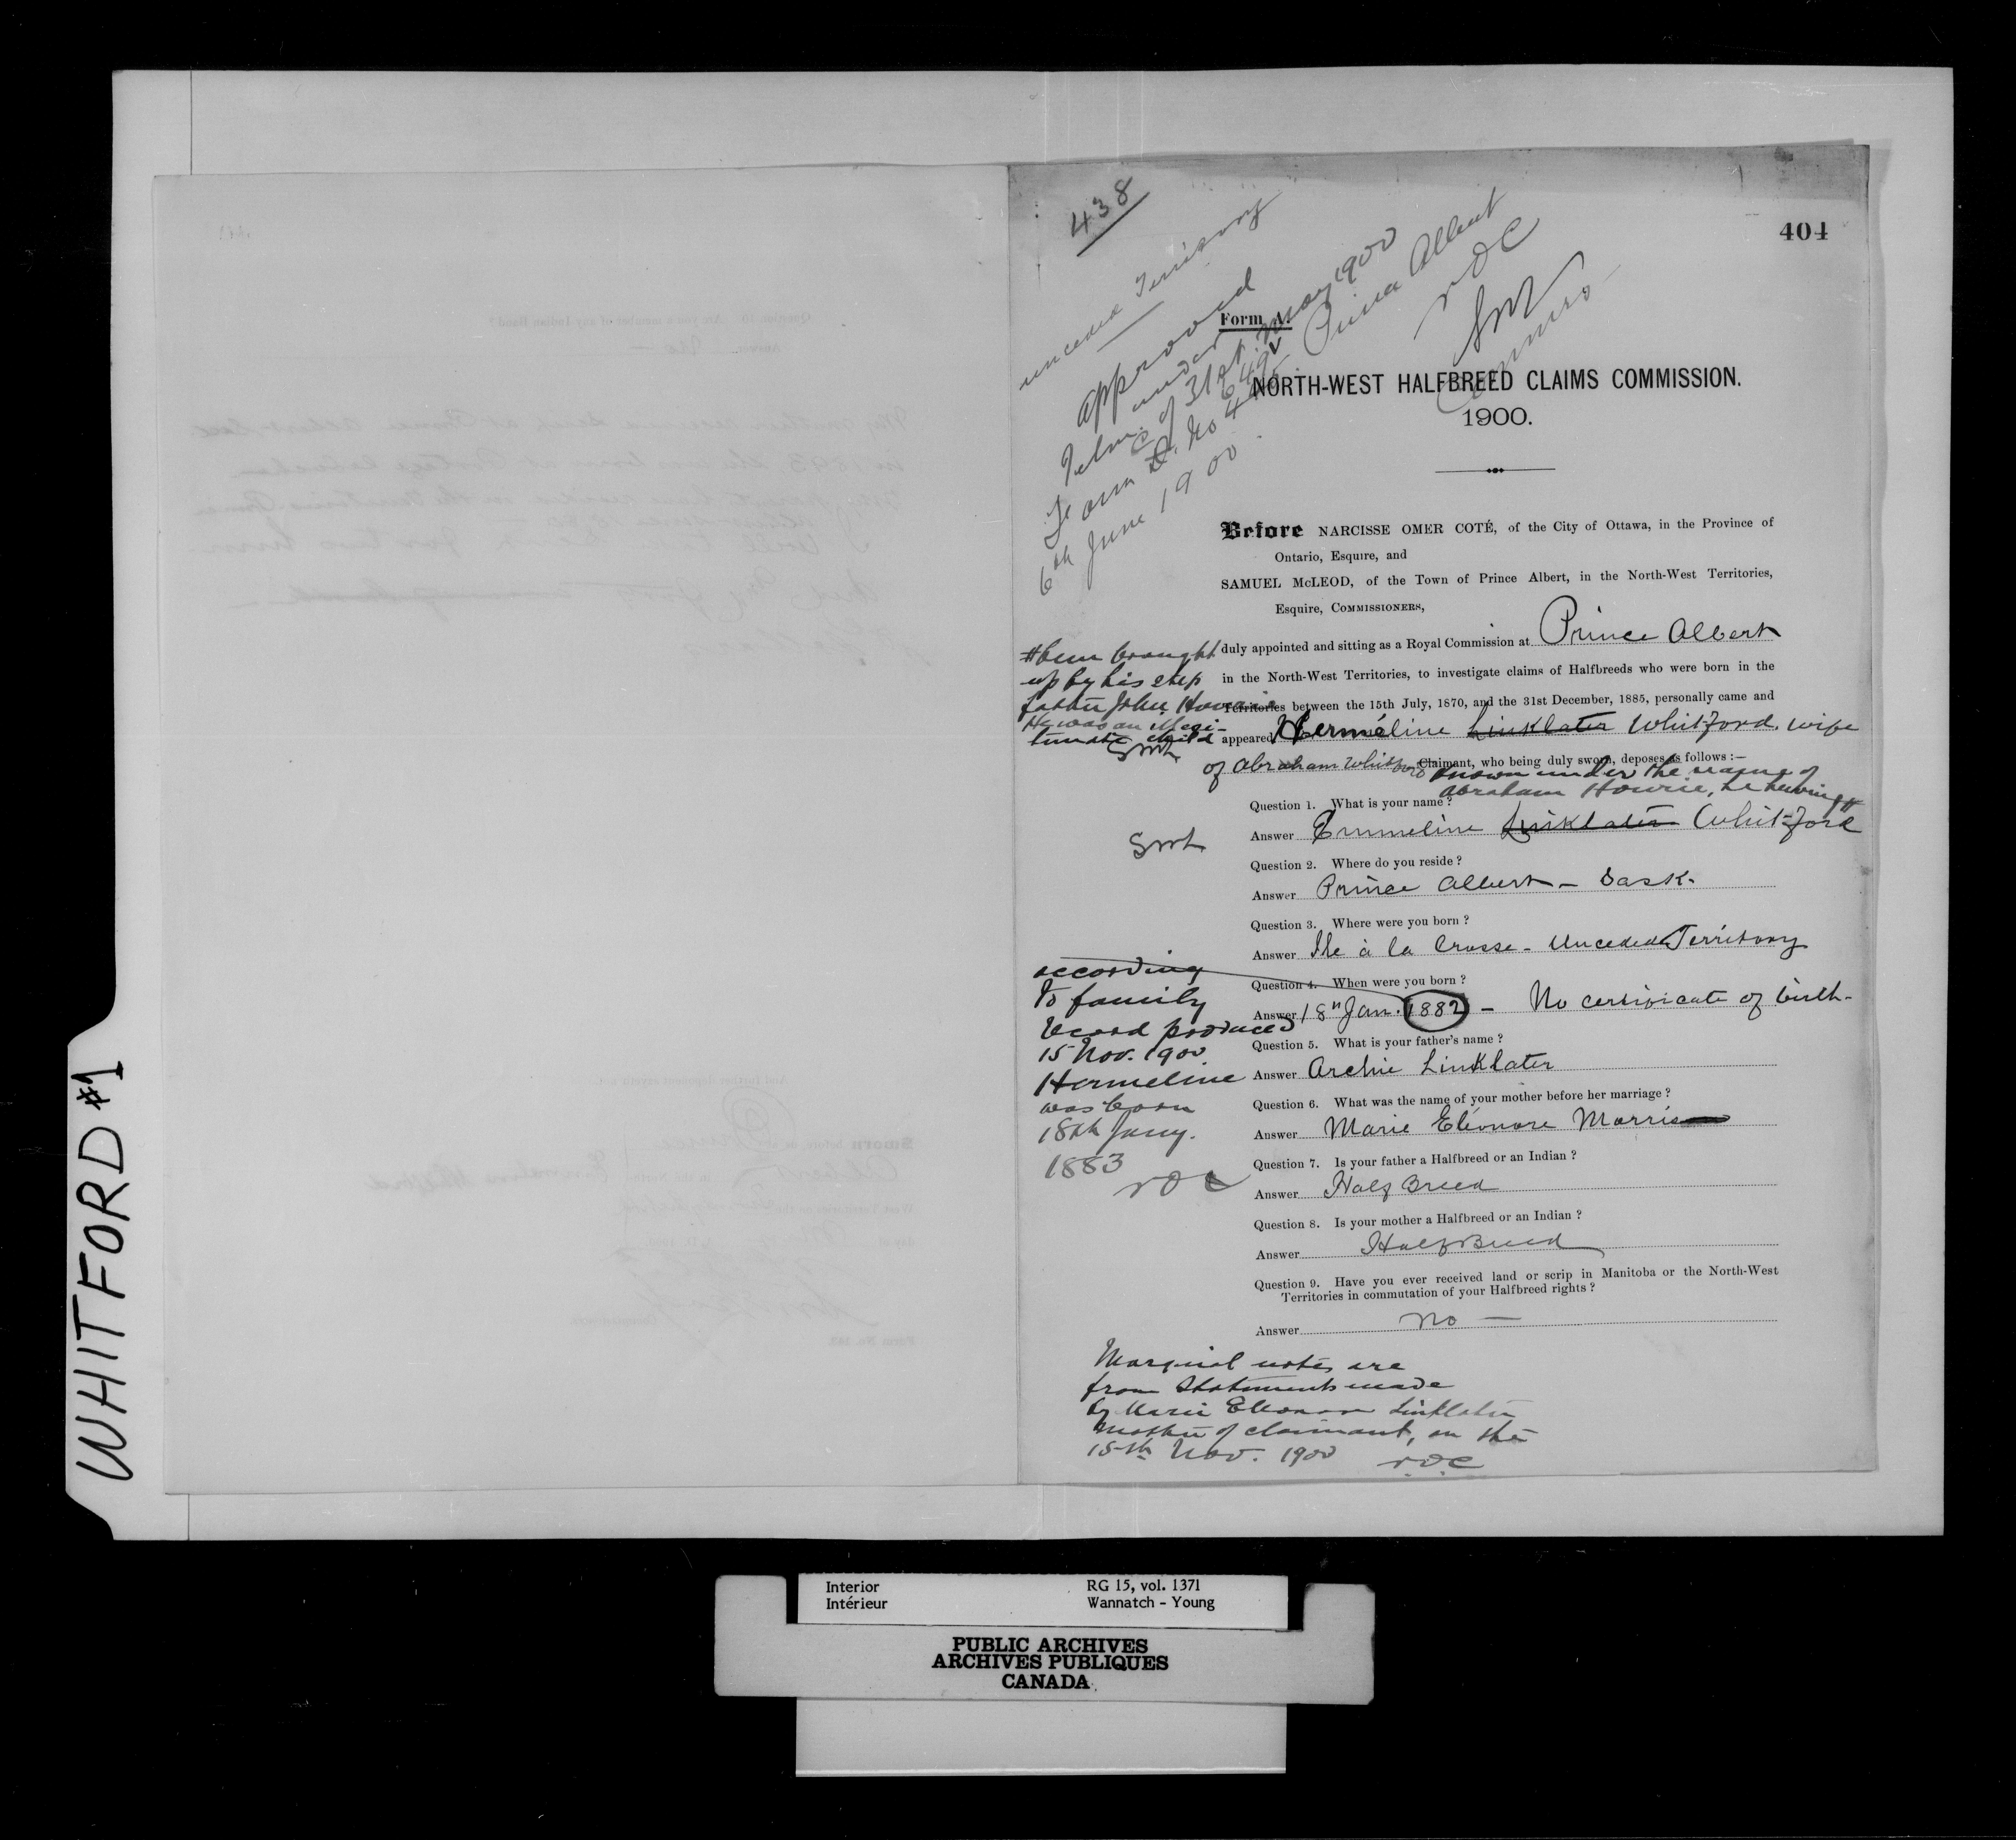 WHITFORD #1
438
404
unceded Territory
approved
under
31st May 1900
Form D. No
6th June 1900
Prince Albert
NOC
Form A.
NORTH-WEST HALFBREED CLAIMS COMMISSION.
1900.
Before NARCISSE OMER COTÉ, of the City of Ottawa, in the Province of
Ontario, Esquire, and
SAMUEL McLEOD, of the Town of Prince Albert, in the North-West Territories,
Esquire, COMMISSIONERS,
duly appointed and sitting as a Royal Commission at Prince Albert
in the North-West Territories, to investigate claims of Halfbreeds who were born in the
Territories between the 15th July, 1870, and the 31st December, 1885, personally came and
appeared Hermeline Linklater Whitford, wife
of Abraham Whitford Claimant, who being duly sworn, deposes as follows :—
known under the name of
Abraham Howrie, he having #
# been brought
up by his step
father John Howrie
He was an illegi-
timate child
SML
Question 1. What is your name ?
Answer Emmeline Linklater Whitford
SML
Question 2. Where do you reside ?
Answer Prince Albert - Sask.
Question 3. Where were you born ?
Answer Ile à la Crosse - Unceded Territory
Question 4. When were you born ?
Answer 18th Jan. 1882 - No certificate of birth-
according
to family
record produced
15 Nov. 1900
Hermeline
was born
18th Jany.
1883
NOC
Question 5. What is your father's name ?
Answer Archie Linklater
Question 6. What was the name of your mother before her marriage ?
Answer Marie Eléonore Morris
Question 7. Is your father a Halfbreed or an Indian ?
Answer Half Breed
Question 8. Is your mother a Halfbreed or an Indian ?
Answer HalfBreed
Question 9. Have you ever received land or scrip in Manitoba or the North-West
Territories in commutation of your Halfbreed rights ?
Answer No —
Marginal notes are
from statements made
by Marie Eleonore Linklater
mother of claimant, on the
15th Nov. 1900 NOC
Interior RG 15, vol. 1371
Intérieur Wannatch - Young
PUBLIC ARCHIVES
ARCHIVES PUBLIQUES
CANADA